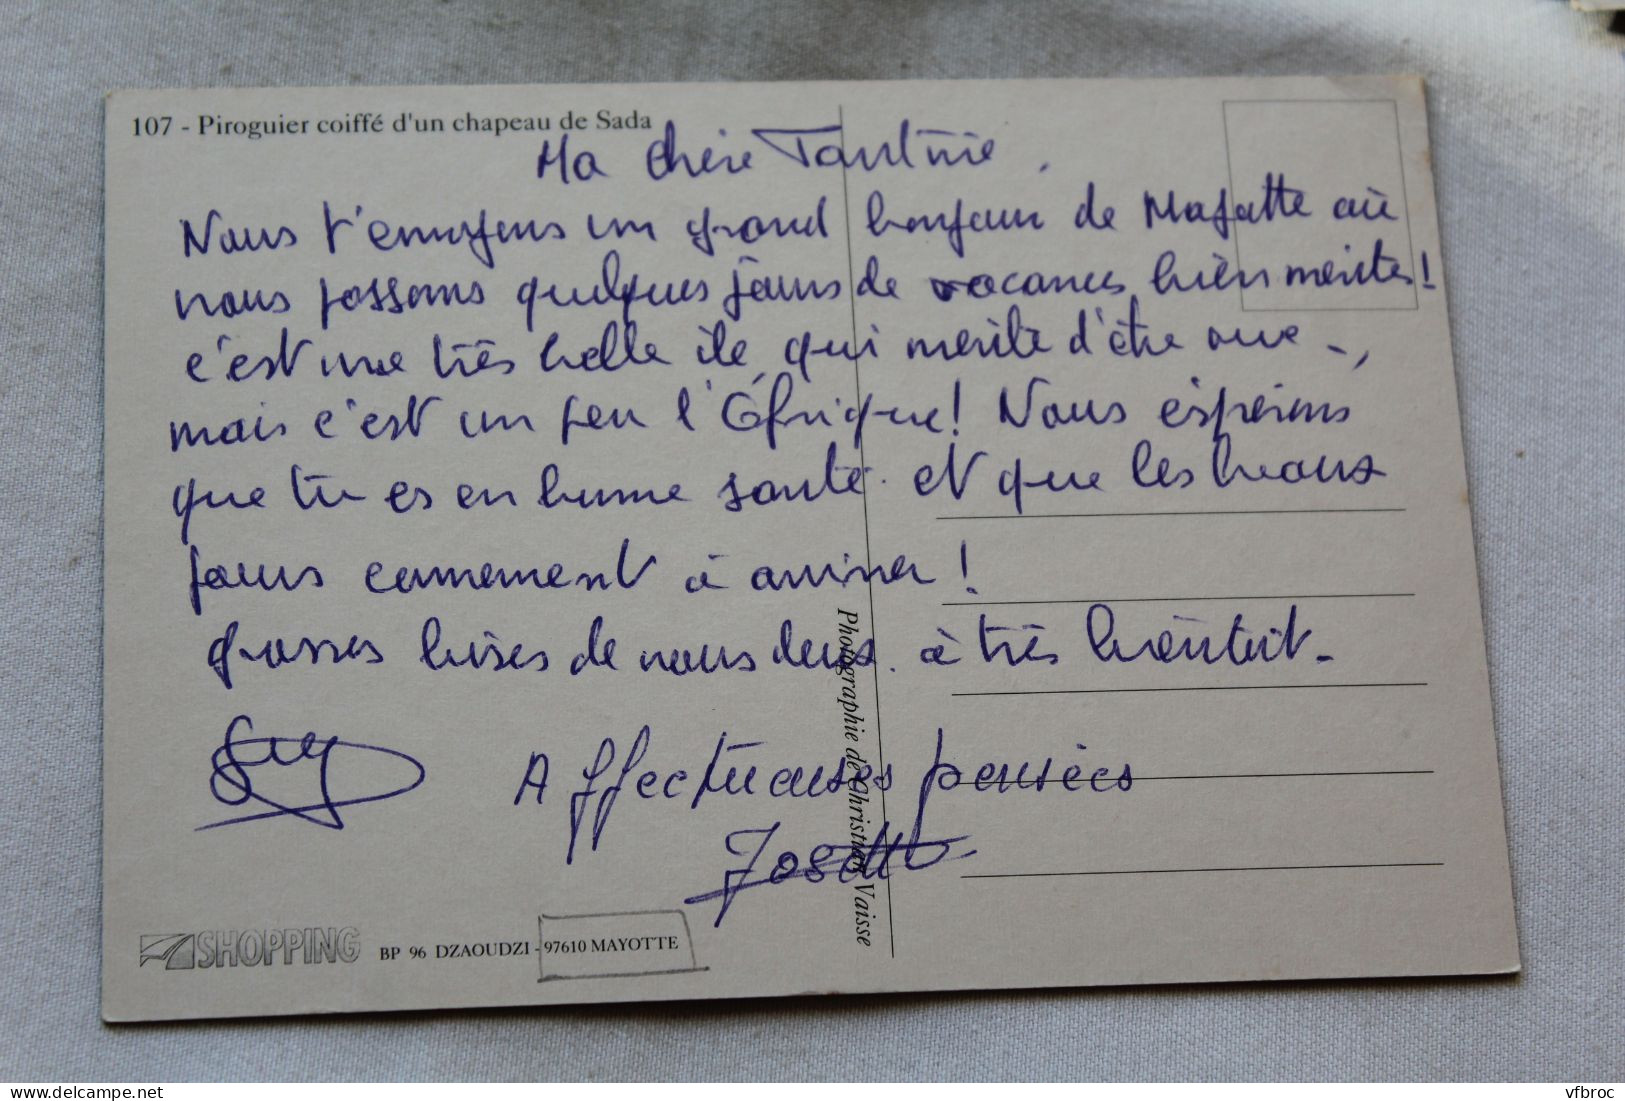 107 - Piroguier coiffé d'un chapeau de Sada
Ma chère Tantine,
Nous t'envoyons un grand bonjour de Mayotte où
nous passons quelques jours de vacances bien mérités!
c'est une très belle île, qui mérite d'être vue -,
mais c'est un peu l'Afrique! Nous espérons
que tu es en bonne santé. et que les beaux
jours commencent à arriver!
grosses bises de nous deux. à très bientôt.
Guy Affectueuses pensées
Josette
Photographie de Christian Vaisse
SHOPPING BP 96 DZAOUDZI - 97610 MAYOTTE
delcampe.net
vfbroc